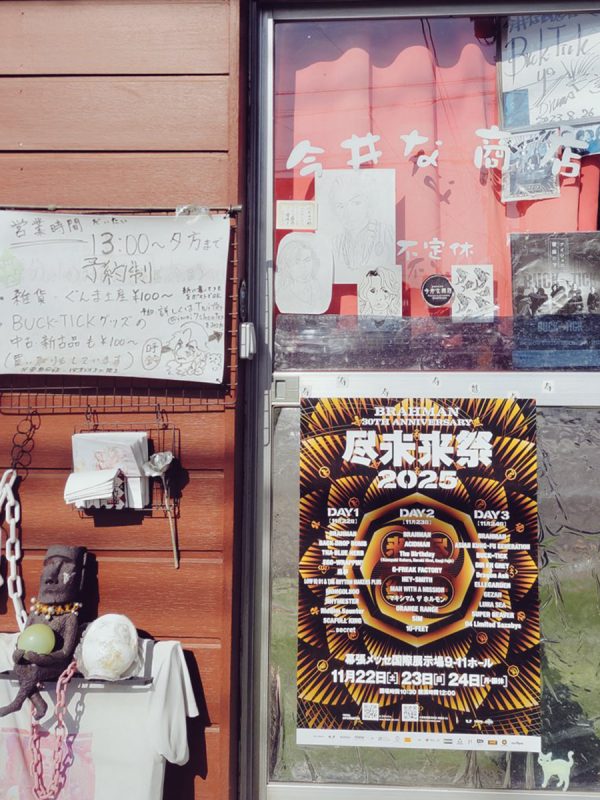 営業時間 だいたい
13:00～夕方まで
予約制
雑貨・ぐんま土産 ¥100～
BUCK-TICKグッズの
中古 新古品も ¥100～
BUCK-TICK
今井な商店
不定休
BUCK-TICK
BRAHMAN
30TH ANNIVERSARY
尽未来祭
2025
DAY1
[11月22日]
BRAHMAN
BACK DROP BOMB
THA BLUE HERB
ECO-WRAPPIN'
MONGOL800
RHYMESTER
Riddim Saunter
SCAFULL KING
secret
DAY2
[11月23日]
BRAHMAN
ACIDMAN
The Birthday
G-FREAK FACTORY
HEY-SMITH
MAN WITH A MISSION
マキシマム ザ ホルモン
ORANGE RANGE
SiM
10-FEET
DAY3
[11月24日]
BRAHMAN
ASIAN KUNG-FU GENERATION
BUCK-TICK
DIR EN GREY
Dragon Ash
ELLEGARDEN
GEZAN
LUNA SEA
SUPER BEAVER
04 Limited Sazabys
幕張メッセ国際展示場9-11ホール
11月22日[土] 23日[日] 24日[月・振休]
開場時間10:30 開演時間12:00